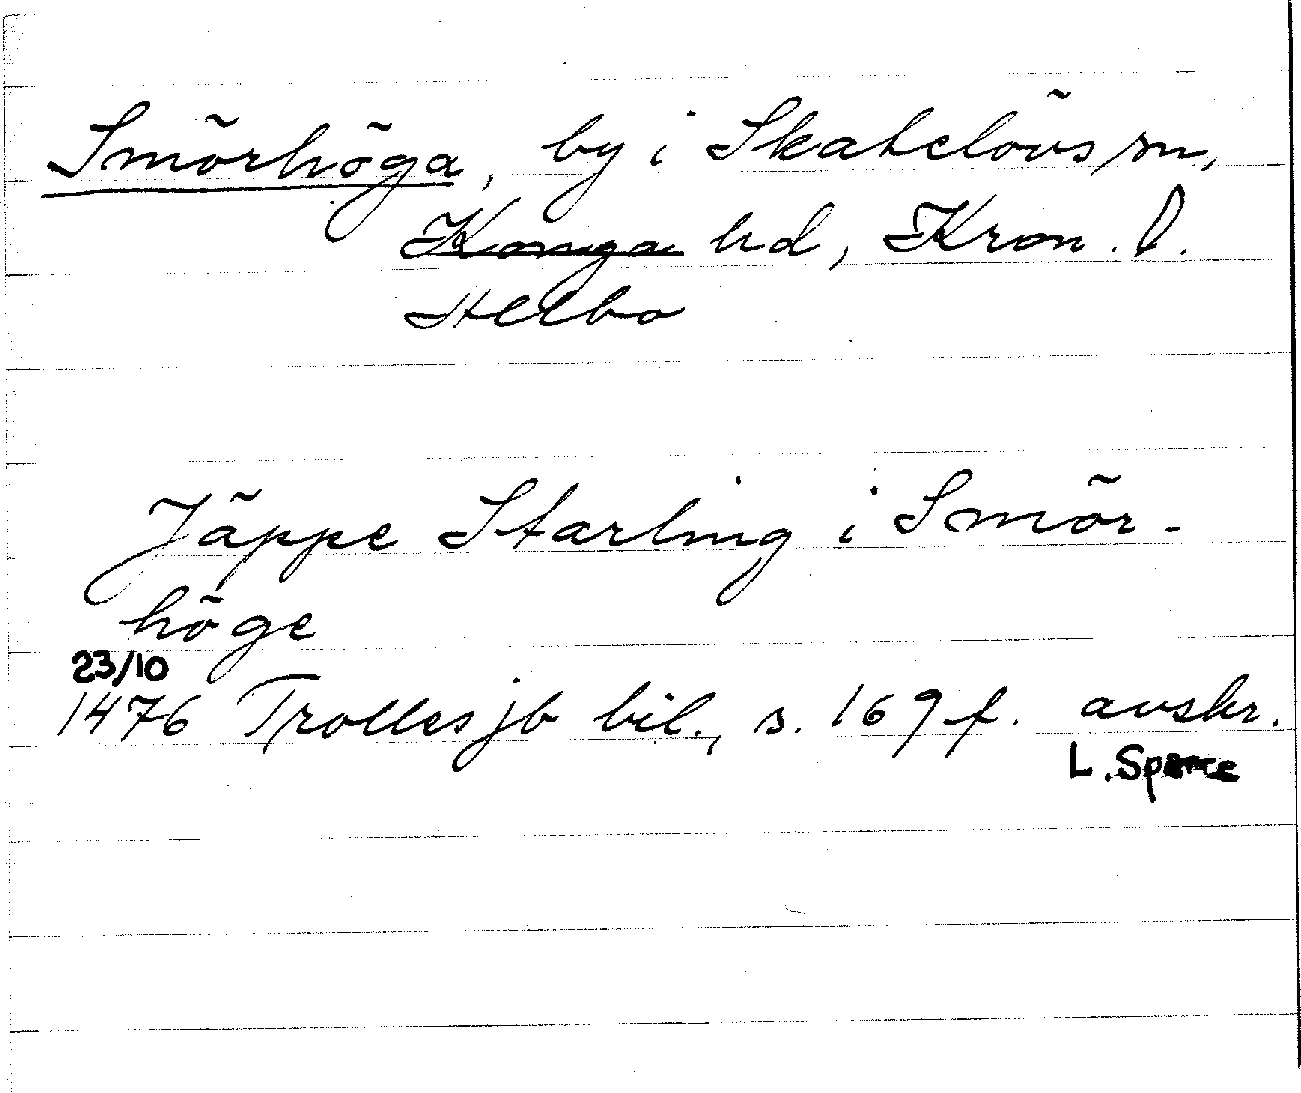 Smörhöga, by i Skatelövs sn,
Konga hd, Kron. l.
Allbo
Jäppe Starling i Smör-
höge
23/10
1476 Trollesjb bil., s. 169 f. avskr.
L. Sparre